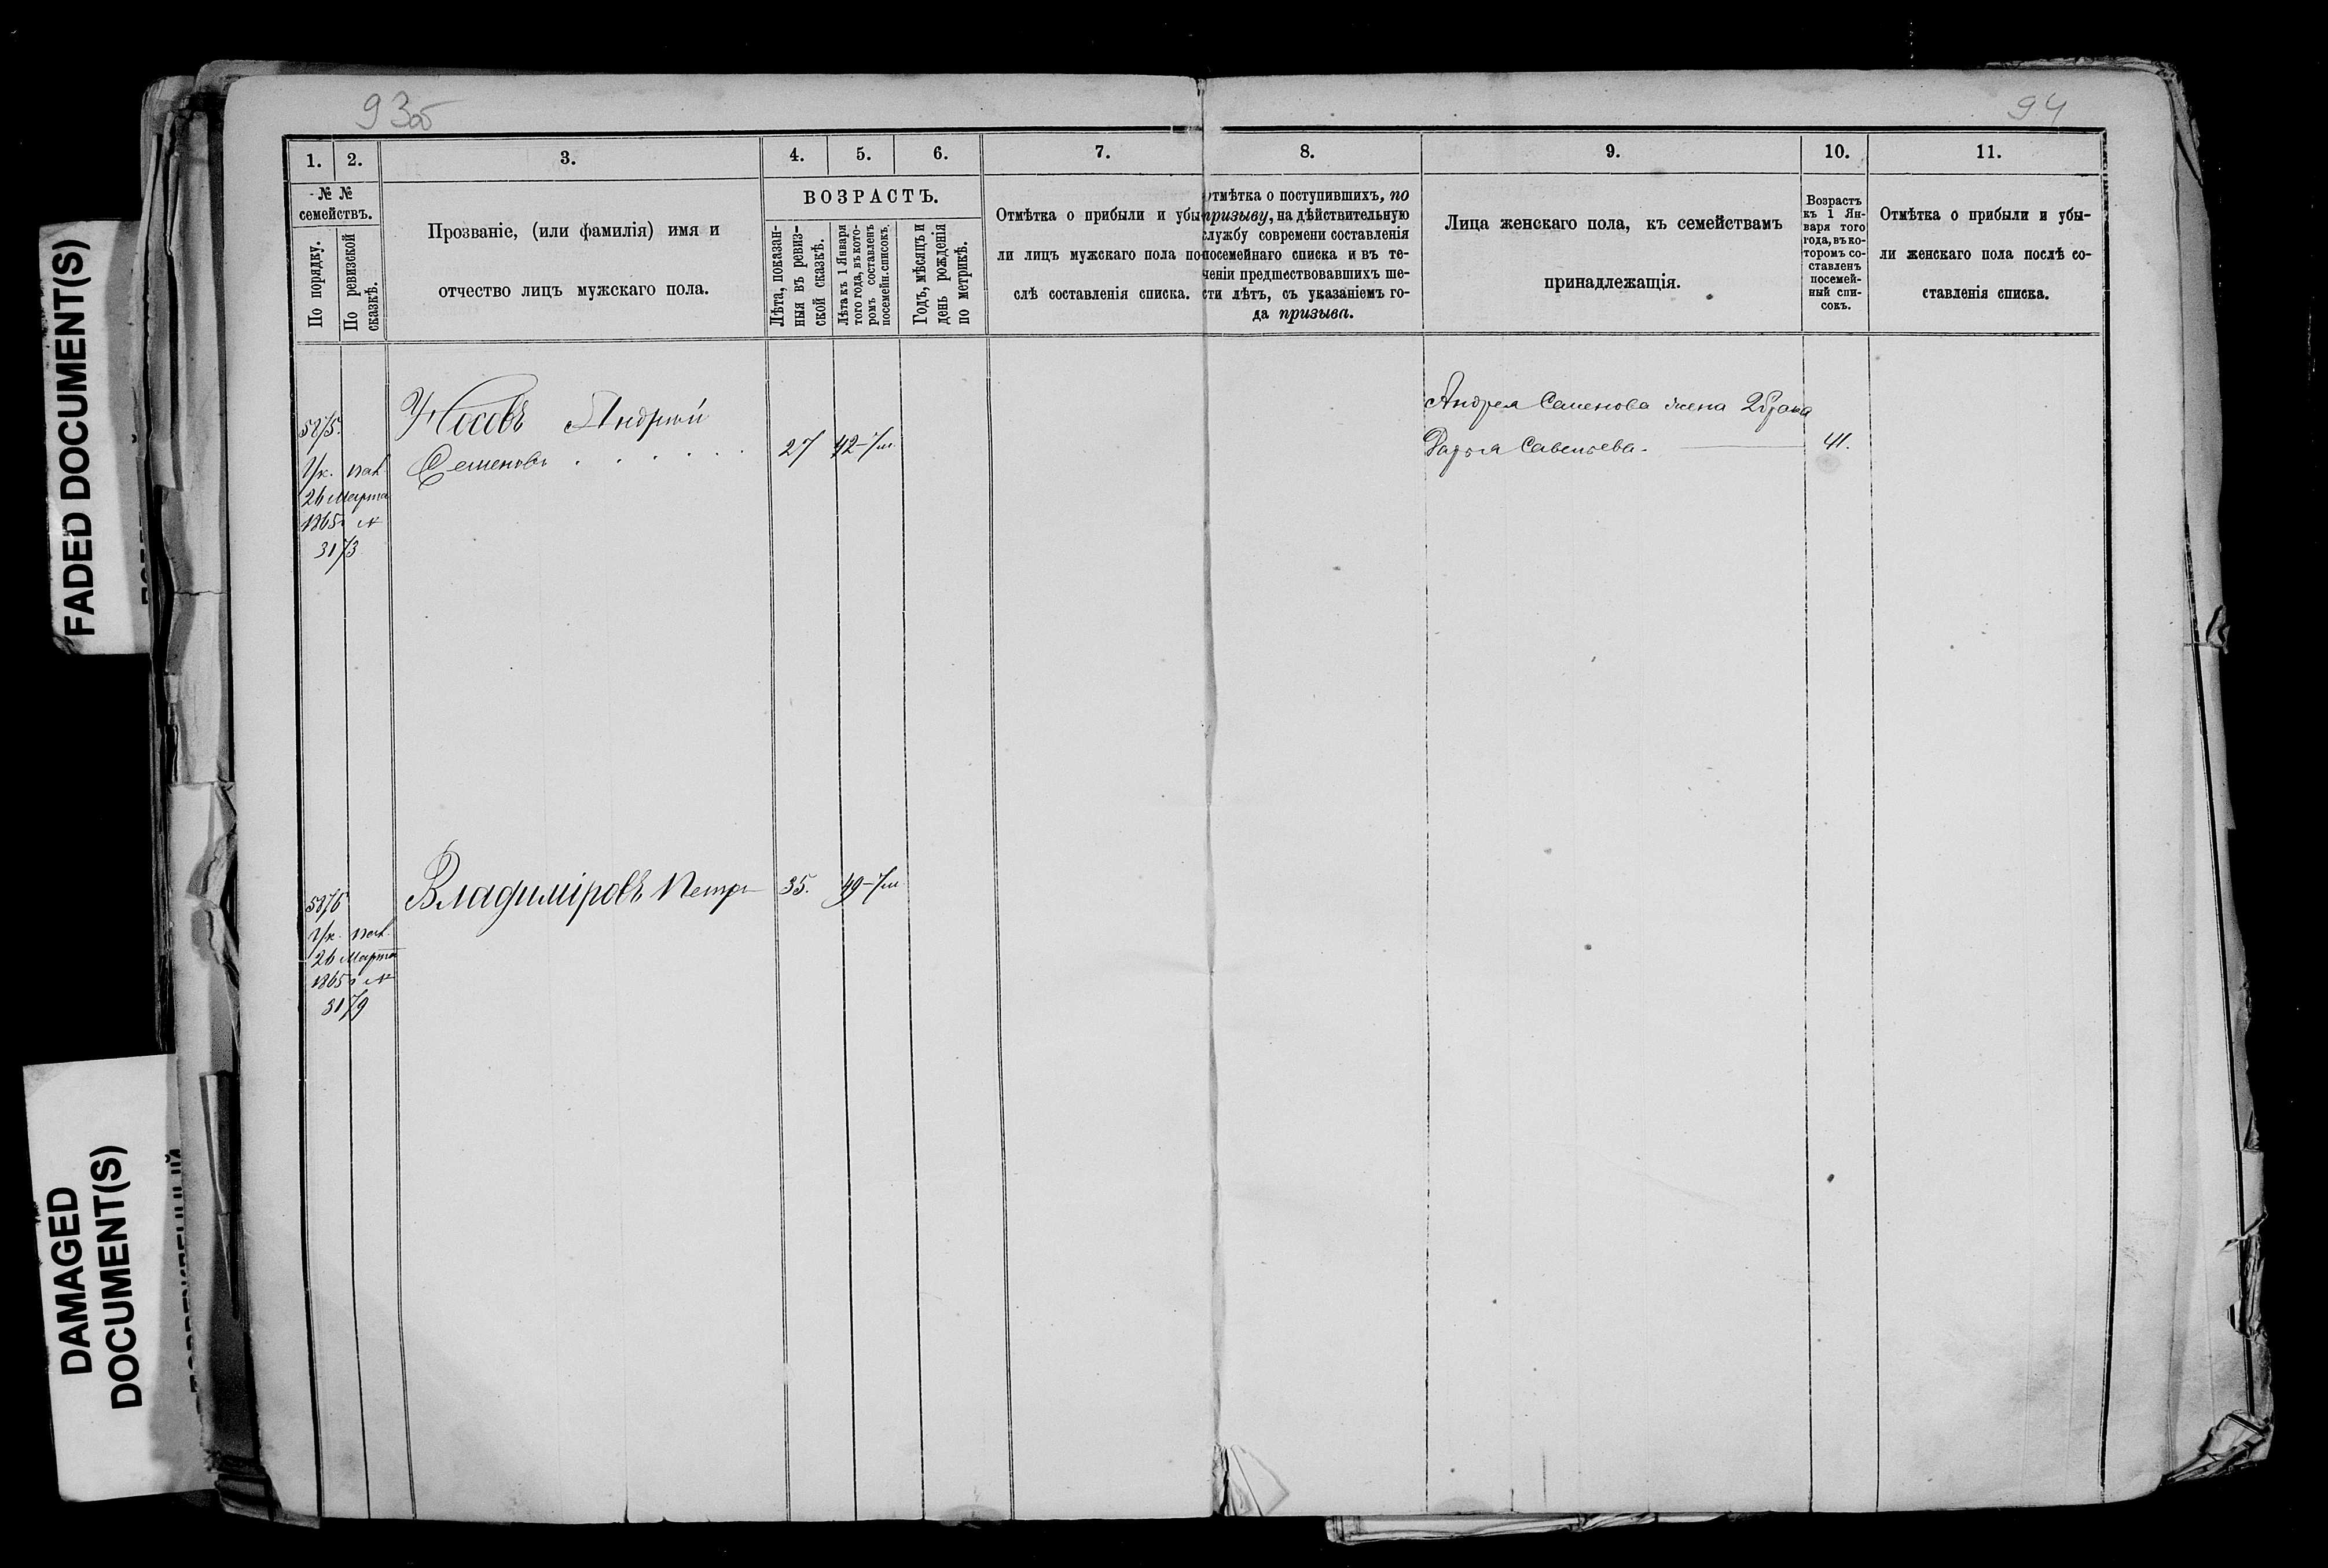 93об
94
FADED DOCUMENT(S)
DAMAGED
DOCUMENT(S)
1.
2.
3.
4.
5.
6.
7.
8.
9.
10.
11.
№ №
семействъ.
По порядку.
По ревизской
сказкѣ.
Прозваніе, (или фамилія) имя и
отчество лицъ мужскаго пола.
ВОЗРАСТЪ.
Лѣта, показан-
ныя въ ревиз-
ской сказкѣ.
Лѣта къ 1 Января
того года, въ кото-
ромъ составленъ
посемейн. списокъ.
Годъ, мѣсяцъ и
день рожденія
по метрикѣ.
Отмѣтка о прибыли и убы-
ли лицъ мужскаго пола по-
слѣ составленія списка.
отмѣтка о поступившихъ, по
призыву, на дѣйствительную
службу современи составленія
посемейнаго списка и въ те-
ченіи предшествовавшихъ ше-
сти лѣтъ, съ указаніемъ го-
да призыва.
Лица женскаго пола, къ семействамъ
принадлежащія.
Возрастъ
къ 1 Ян-
варя того
года, въ ко-
торомъ со-
ставленъ
посемей-
ный спи-
сокъ.
Отмѣтка о прибыли и убы-
ли женскаго пола послѣ со-
ставленія списка.
5875.
Ук. пал.
26 Марта
1865 г №
3173
Носовъ Андрей
Семеновъ . . . . . .
27
42-7м
Андрея Семенова жена 2 брака
Дарья Савельева.
41.
5876
Ук. пал.
26 Марта
1865 г №
3179
Владиміровъ Петръ
35.
49-7м